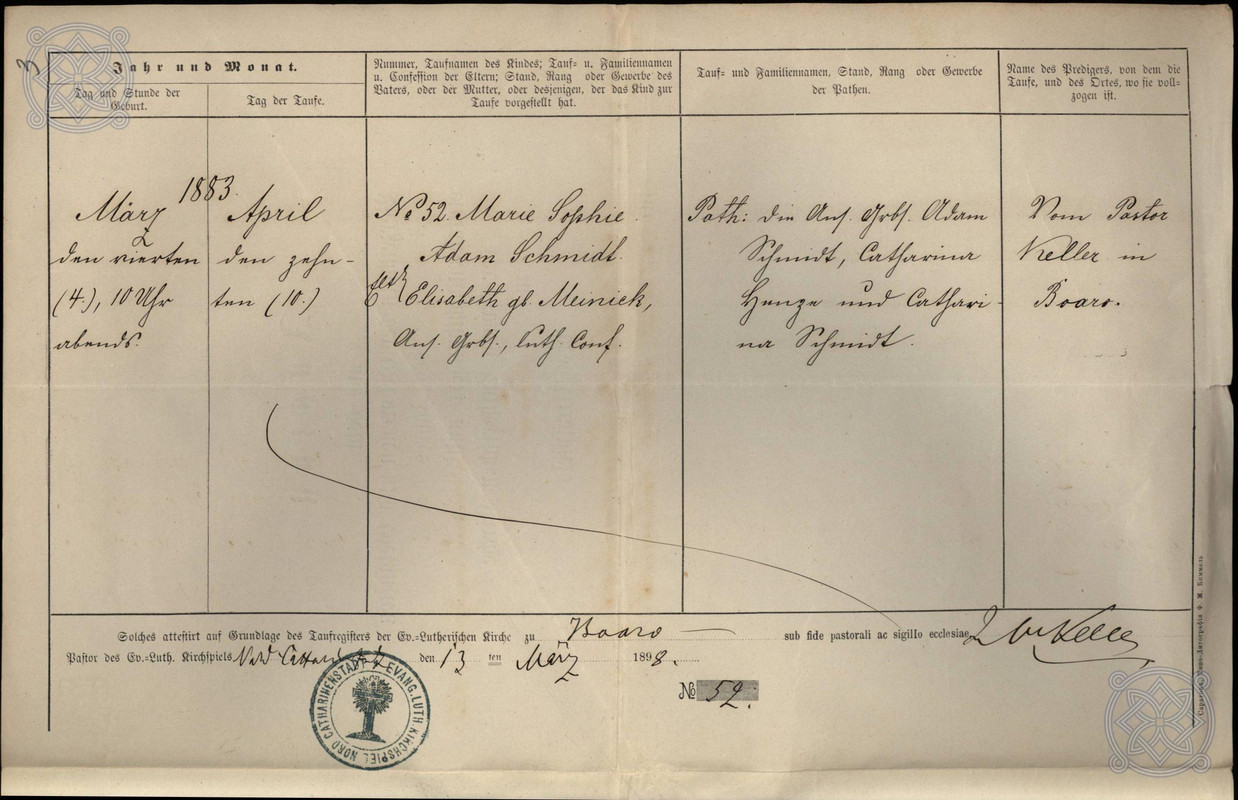 3
Jahr und Monat.
Tag und Stunde der
Geburt.
Tag der Taufe.
Nummer, Taufnamen des Kindes; Tauf- u. Familiennamen
u. Confession der Eltern; Stand, Rang oder Gewerbe des
Vaters, oder der Mutter, oder desjenigen, der das Kind zur
Taufe vorgestellt hat.
Tauf- und Familiennamen, Stand, Rang oder Gewerbe
der Pathen.
Name des Predigers, von dem die
Taufe, und des Ortes, wo sie voll-
zogen ist.
1883.
März
den vierten
(4.), 10 Uhr
abends.
April
den zehn-
ten (10.)
No 52. Marie Sophie.
Adam Schmidt.
Elisabeth gb. Meinick,
Ans. Grbs., luth. Conf.
Path: die Ans. Grbs. Adam
Schmidt, Catharina
Henze und Cathari-
na Schmidt.
Vom Pastor
Keller in
Boaro.
Solches attestirt auf Grundlage des Taufregisters der Ev.-Lutherischen Kirche zu Boaro sub fide pastorali ac sigillo ecclesiae
Pastor des Ev.-Luth. Kirchspiels Nord den 13 ten März 1898.
No 52.
NORD CATHARINENSTADT EVANG. LUTH. KIRCHSPIEL